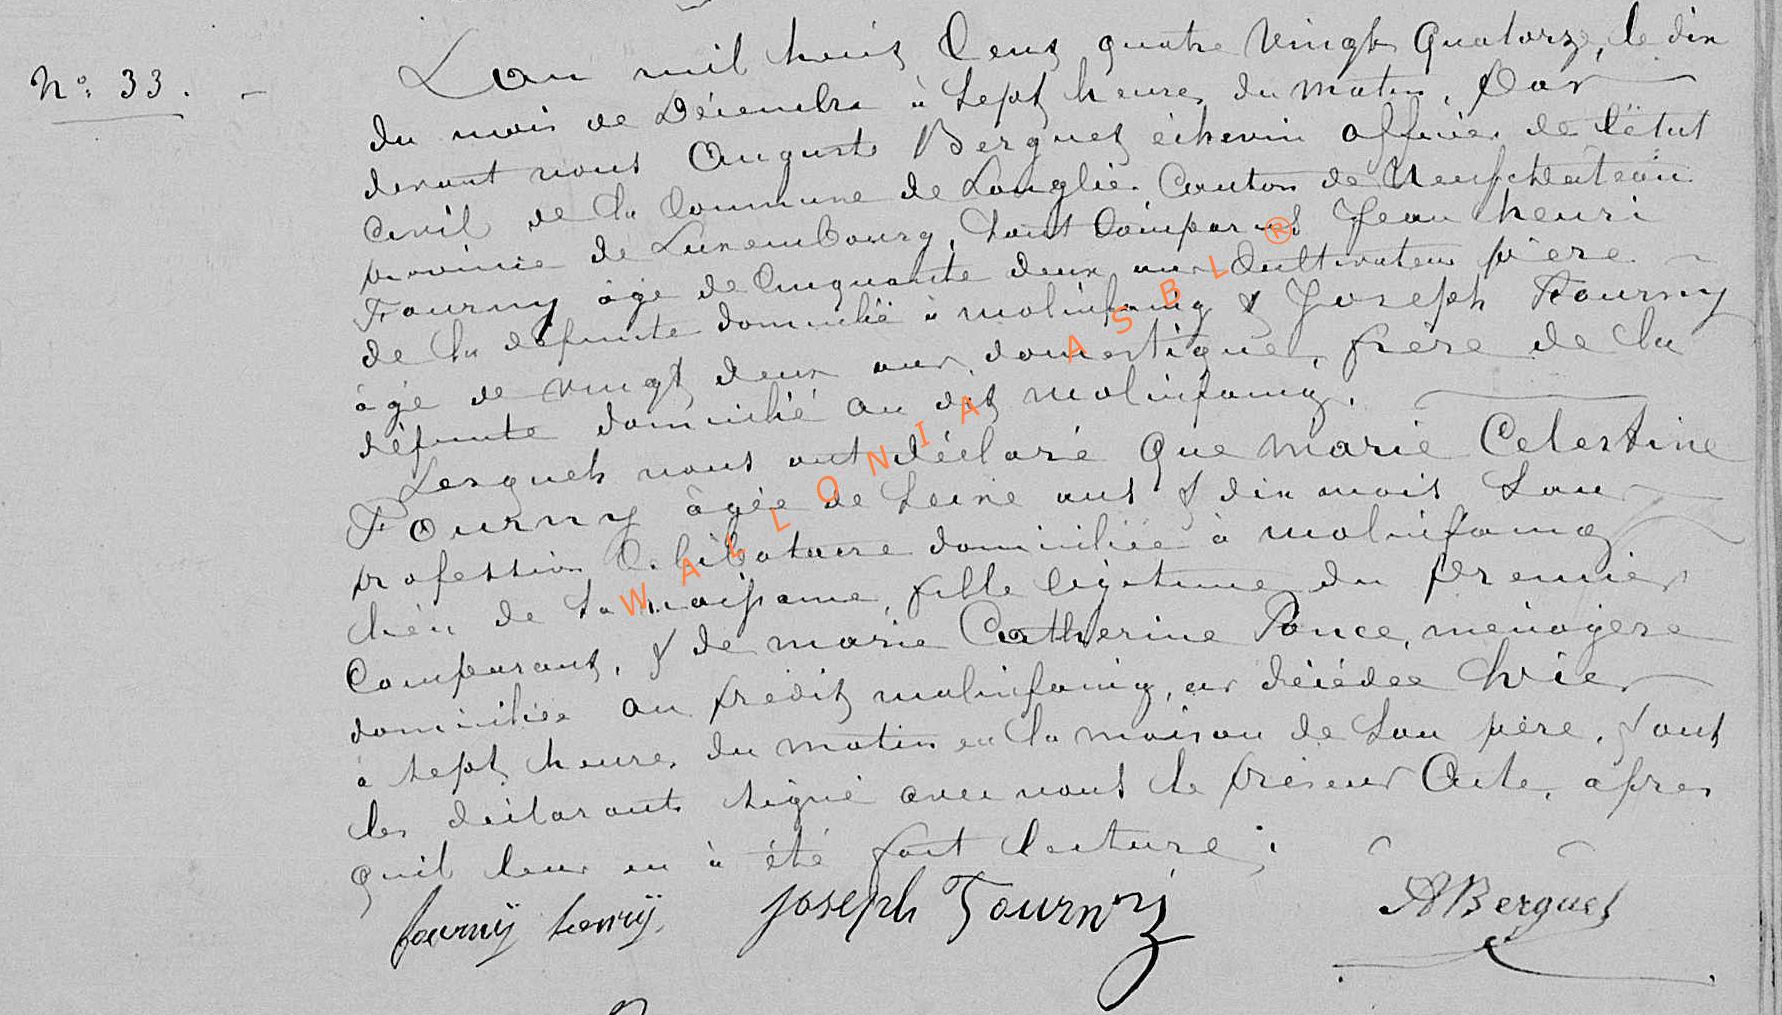 N° 33. -
L'an mil huit Cent quatre vingt quatorze, le dix
du mois de Décembre à sept heures du matin, Par
devant nous Auguste Berguet échevin officier de l'état
Civil de la Commune de Longlier Canton de Neufchâteau
province de Luxembourg, sont Comparus Jean henri
Fourny âgé de Cinquante deux ans Cultivateur père
de la défunte domicilié à molinfaing & Joseph Fourny
âgé de vingt deux ans, domestique, frère de la
défunte domicilié au dit molinfaing.
Lesquels nous ont déclaré que marie Celestine
Fourny âgée de seize ans & dix mois San
profession Celibataire domiciliée à molinfaing
lieu de sa naissance, fille légitime du premier
Comparant, & de marie Catherine Ponce, ménagère
domiciliée au prédit molinfaing, est décédée hier
à sept heures du matin en la maison de son père, & ont
les déclarants signé avec nous le présent Acte, après
qu'il leur en à été fait lecture ;
fourny henry. Joseph Fourny ABerguet
WALLONIA ASBL ®